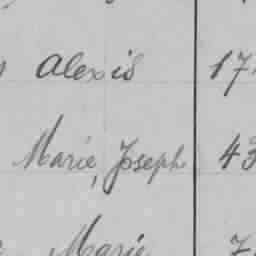 Alexis 17
Marie, Joseph 43
Marie 7